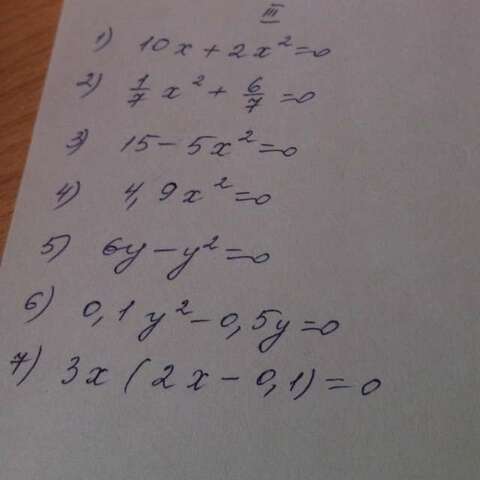 III
1) 10x + 2x² = 0
2) 1/7 x² + 6/7 = 0
3) 15 - 5x² = 0
4) 4,9x² = 0
5) 6y - y² = 0
6) 0,1y² - 0,5y = 0
7) 3x (2x - 0,1) = 0